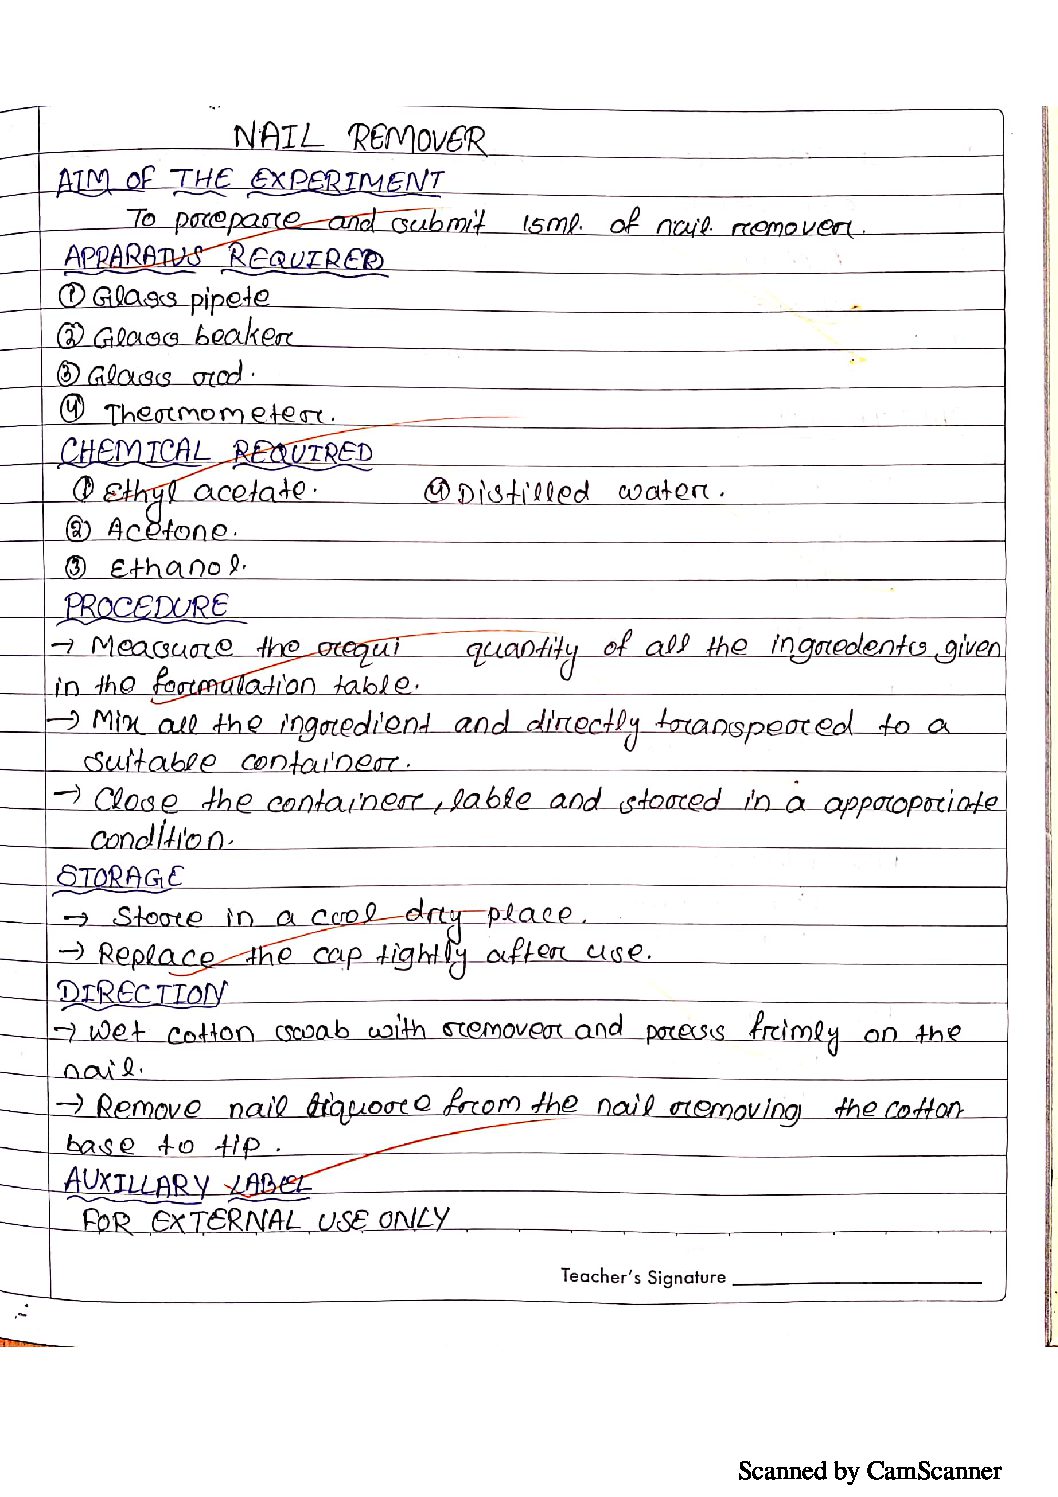 NAIL REMOVER
AIM OF THE EXPERIMENT
To prepare and submit 15ml. of nail remover.
APPARATUS REQUIRED
① Glass pipete
② Glass beaker
③ Glass rod.
④ Thermometer.
CHEMICAL REQUIRED
① Ethyl acetate. ④ Distilled water.
② Acetone.
③ Ethanol.
PROCEDURE
→ Measure the requi quantity of all the ingredents given
in the formulation table.
→ Mix all the ingredient and directly transpered to a
suitable container.
→ Close the container, lable and stored in a appropriate
condition.
STORAGE
→ Store in a cool dry place.
→ Replace the cap tightly after use.
DIRECTION
→ Wet cotton swab with remover and press frimly on the
nail.
→ Remove nail from the nail removing the cotton
base to tip.
AUXILLARY LABEL
FOR EXTERNAL USE ONLY
Teacher's Signature
Scanned by CamScanner